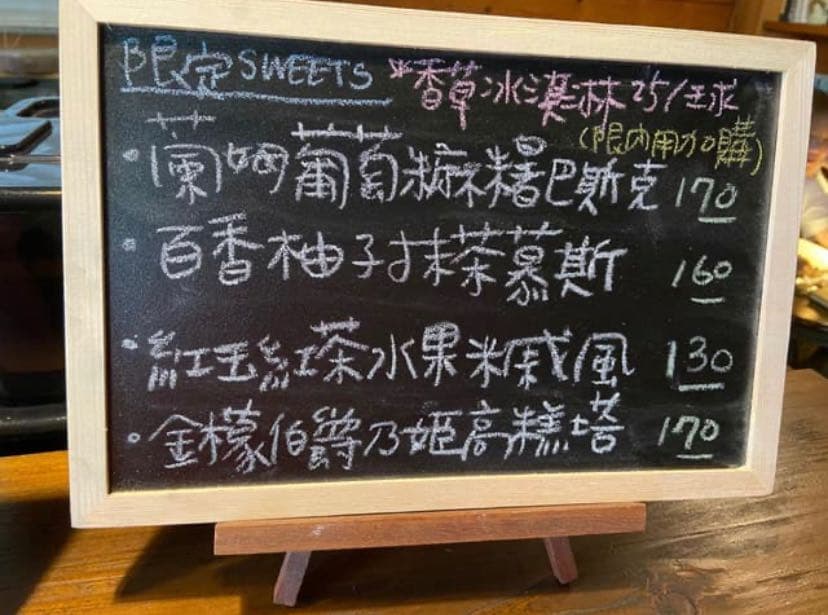 限定SWEETS
*香草冰淇淋25/球
(限內用加購)
•蘭姆葡萄麻糬巴斯克 170
•百香柚子抹茶慕斯 160
•紅玉紅茶水果米戚風 130
•金檬伯爵乃姬高糕塔 170